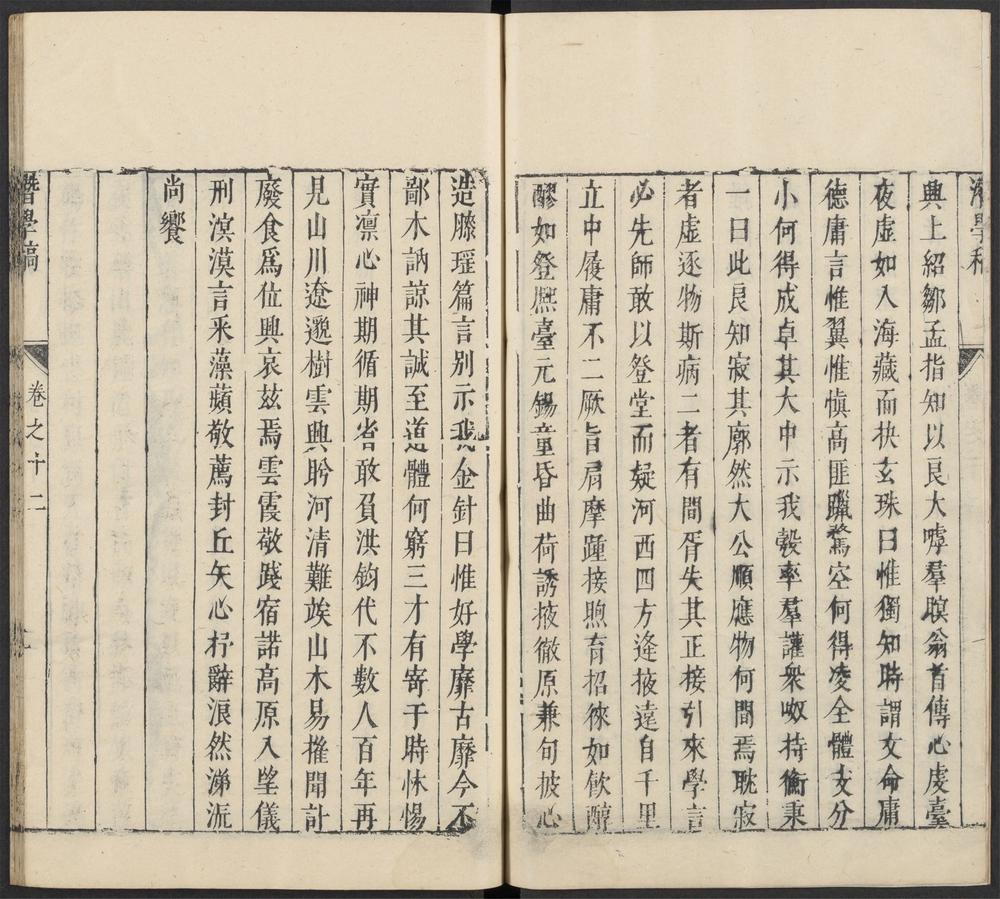 興上紹鄒孟指知以良大嘑羣瞑翁首傳心虔臺
夜虛如入海藏而抉玄珠曰惟獨知時謂文命庸
德庸言惟翼惟愼高匪躐騖空何得凌全體支分
小何得成卓其大中示我彀率羣讙衆呶持衡秉
一曰此良知寂其廓然大公順應物何間焉耽寂
者虛逐物斯病二者有間胥失其正接引來學言
必先師敢以登堂而疑河西四方逢掖遠自千里
立中履庸不二厥旨肩摩踵接煦育招徠如飲醇
醪如登熈臺元錫童昏曲荷誘掖徹原兼句披心
造膝瑾篇言别示我金針曰惟好學靡古靡今不
鄙木訥諒其誠至道體何窮三才有寄于時怵惕
實凛心神期循期省敢負洪鈞代不數人百年再
見山川遼邈樹雲興盻河清難竢山木易摧聞訃
廢食爲位興哀玆焉雲霞敬踐宿諾高原入望儀
刑溟漠言采藻蘋敬薦封丘矢心抒辭淚然涕泝
尚饗
暦學稿
卷之十二